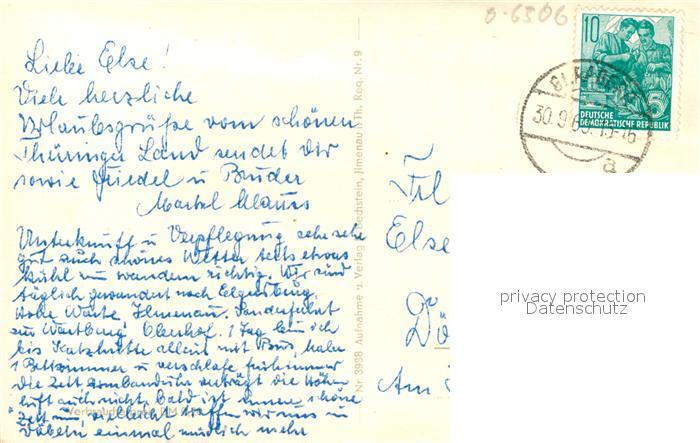 o-6506
Liebe Else!
Viele herzliche
Urlaubsgrüße vom schönen
Thüringer Land sendet dir
sowie Friedel u Bruder
Martel Claus
Unterkunft u Verpflegung sehr sehr
gut auch schönes Wetter teils etwas
kühl zu wandern richtig. Wir sind
täglich gewandert nach Elgersburg,
Hohe Warte Ilmenau. Sonderfahrt
zur Wartburg Oberhof. 1 Tag bin ich
bis Katzhütte allein mit Bus, habe
1 Bettzimmer u verschlafe früh immer
die Zeit, Armbanduhr verträgt die Höhen-
luft auch nicht. Bald ist immer schöne
Zeit um, vielleicht treffen wir uns in
Döbeln einmal mündlich mehr
Nr 3938 Aufnahme u. Verlag Bechstein, Ilmenau (Th. Reg. Nr. 9
10
DEUTSCHE
DEMOKRATISCHE REPUBLIK
30.9.63.15-16
a
Frl
Else
Dö
Am
privacy protection
Datenschutz